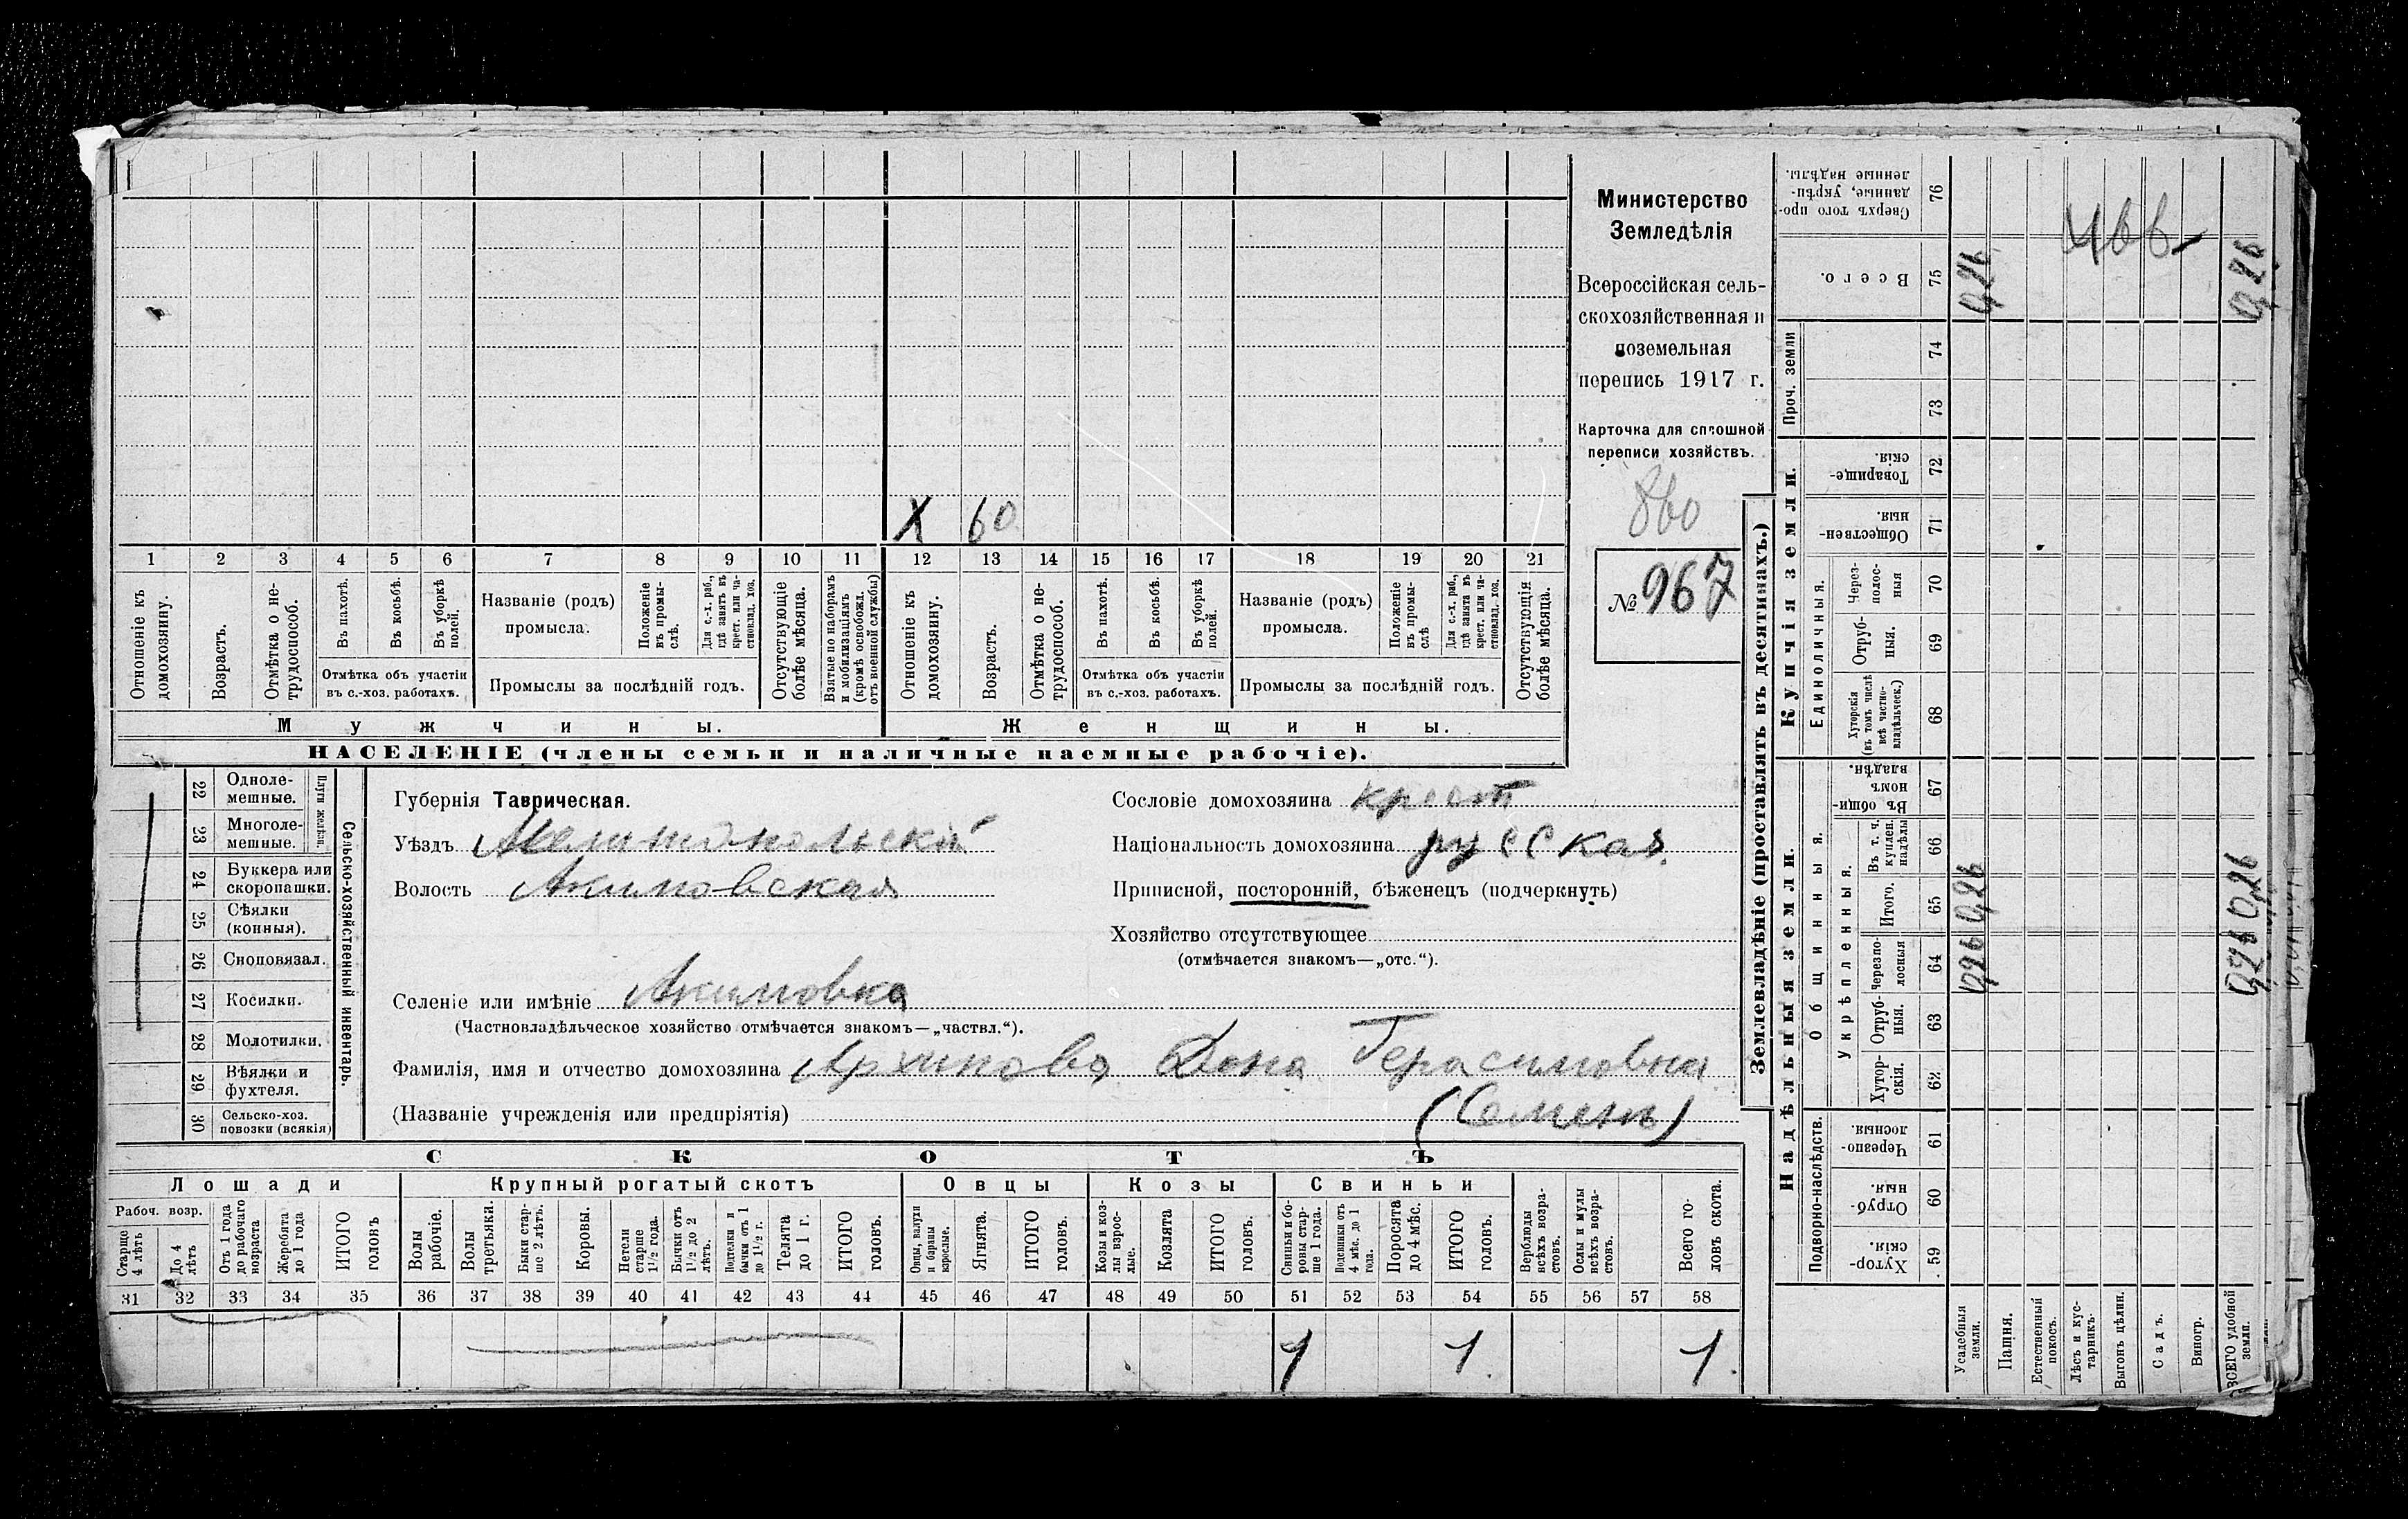 Министерство
Земледѣлія
Всероссійская сель-
скохозяйственная и
поземельная
перепись 1917 г.
Карточка для сплошной
переписи хозяйствъ.
860
№ 967
X 60
1 2 3 4 5 6 7 8 9 10 11 12 13 14 15 16 17 18 19 20 21
Отношеніе къ домохозяину.
Возрастъ.
Отмѣтка о не-трудоспособ.
Въ пахотѣ.
Въ косьбѣ.
Въ уборкѣ полей.
Отмѣтка объ участіи
въ с.-хоз. работахъ.
Названіе (родъ)
промысла.
Положеніе въ промы-слѣ.
Для с.-х. раб., гдѣ занятъ въ крест. или ча-стновлад. хоз.
Промыслы за послѣдній годъ.
Отсутствующіе болѣе мѣсяца.
Взятые по наборамъ и мобилизаціямъ (кромѣ освобожд. отъ военной службы)
Отношеніе къ домохозяину.
Возрастъ.
Отмѣтка о не-трудоспособ.
Въ пахотѣ.
Въ косьбѣ.
Въ уборкѣ полей.
Отмѣтка объ участіи
въ с.-хоз. работахъ.
Названіе (родъ)
промысла.
Положеніе въ промы-слѣ
Для с.-х. раб., гдѣ занята въ крест. или ча-стновлад. хоз.
Промыслы за послѣдній годъ.
Отсутствующія болѣе мѣсяца.
Мужчины. Женщины.
НАСЕЛЕНІЕ (члены семьи и наличные наемные рабочіе).
Сельско-хозяйственный инвентарь.
Плуги желѣзн.
22 Одноле-мешные.
23 Многоле-мешные.
24 Буккера или скоропашки.
25 Сѣялки (конныя).
26 Сноповязал.
27 Косилки.
28 Молотилки.
29 Вѣялки и фухтеля.
30 Сельско-хоз. повозки (всякія)
Губернія Таврическая.
Уѣздъ Мелитопольскій
Волость Акимовская
Селеніе или имѣніе Акимовка
(Частновладѣльческое хозяйство отмѣчается знакомъ—„частвл.“).
Фамилія, имя и отчество домохозяина Архипова Дона Герасимовна
(Названіе учрежденія или предпріятія) (Семенъ)
Сословіе домохозяина крест
Національность домохозяина русская
Приписной, посторонній, бѣженецъ (подчеркнуть)
Хозяйство отсутствующее
(отмѣчается знакомъ—„отс.“).
СКОТЪ
Лошади Крупный рогатый скотъ Овцы Козы Свиньи
Рабоч. возр.
Старше 4 лѣтъ
До 4 лѣтъ
Отъ 1 года до рабочаго возраста
Жеребята до 1 года
ИТОГО головъ
Волы рабочіе.
Волы третьяки.
Быки стар-ше 2 лѣтъ.
Коровы.
Нетели старше 1½ года.
Бычки отъ 1½ до 2 лѣтъ.
Подтелки и бычки отъ 1 до 1½ г.
Телята до 1 г.
ИТОГО головъ.
Овцы, валухи и бараны взрослые.
Ягнята.
ИТОГО головъ.
Козы и коз-лы взрос-лые.
Козлята
ИТОГО головъ.
Свиньи и бо-ровы стар-ше 1 года.
Подсвинки отъ 4 мѣс. до 1 года.
Поросята до 4 мѣс.
ИТОГО головъ.
Верблюды всѣхъ возра-стовъ.
Ослы и мулы всѣхъ возра-стовъ.
Всего го-ловъ скота.
31 32 33 34 35 36 37 38 39 40 41 42 43 44 45 46 47 48 49 50 51 52 53 54 55 56 57 58
1 1 1
Землевладѣніе (проставлять въ десятинахъ.)
Надѣльныя земли.
Купчія земли.
Проч. земли
Подворно-наслѣдств.
Общинныя.
Укрѣпленныя.
Единоличныя.
Сверхъ того про-данные, укрѣп-ленные надѣлы. 76
Всего. 75
74
73
Товарище-скія. 72
Обществен-ныя. 71
Через-полос-ныя 70
Отруб-ныя. 69
Хуторскія (въ томъ числѣ всѣ частно-владѣльческ.) 68
Въ общин-номъ владѣн. 67
Въ т. ч. куплен. надѣлы 66
Итого. 65
Черезпо-лосныя 64
Отруб-ныя. 63
Хутор-скія. 62
Черезпо-лосныя 61
Отруб-ныя. 60
Хутор-скія. 59
Усадебныя земли.
Пашня.
Естественный покосъ.
Лѣсъ и кус-тарникъ.
Выгонъ цѣлин.
Садъ.
Виногр.
ВСЕГО удобной земли.
0,26 0,26
0,26 0,26
0,26 0,26